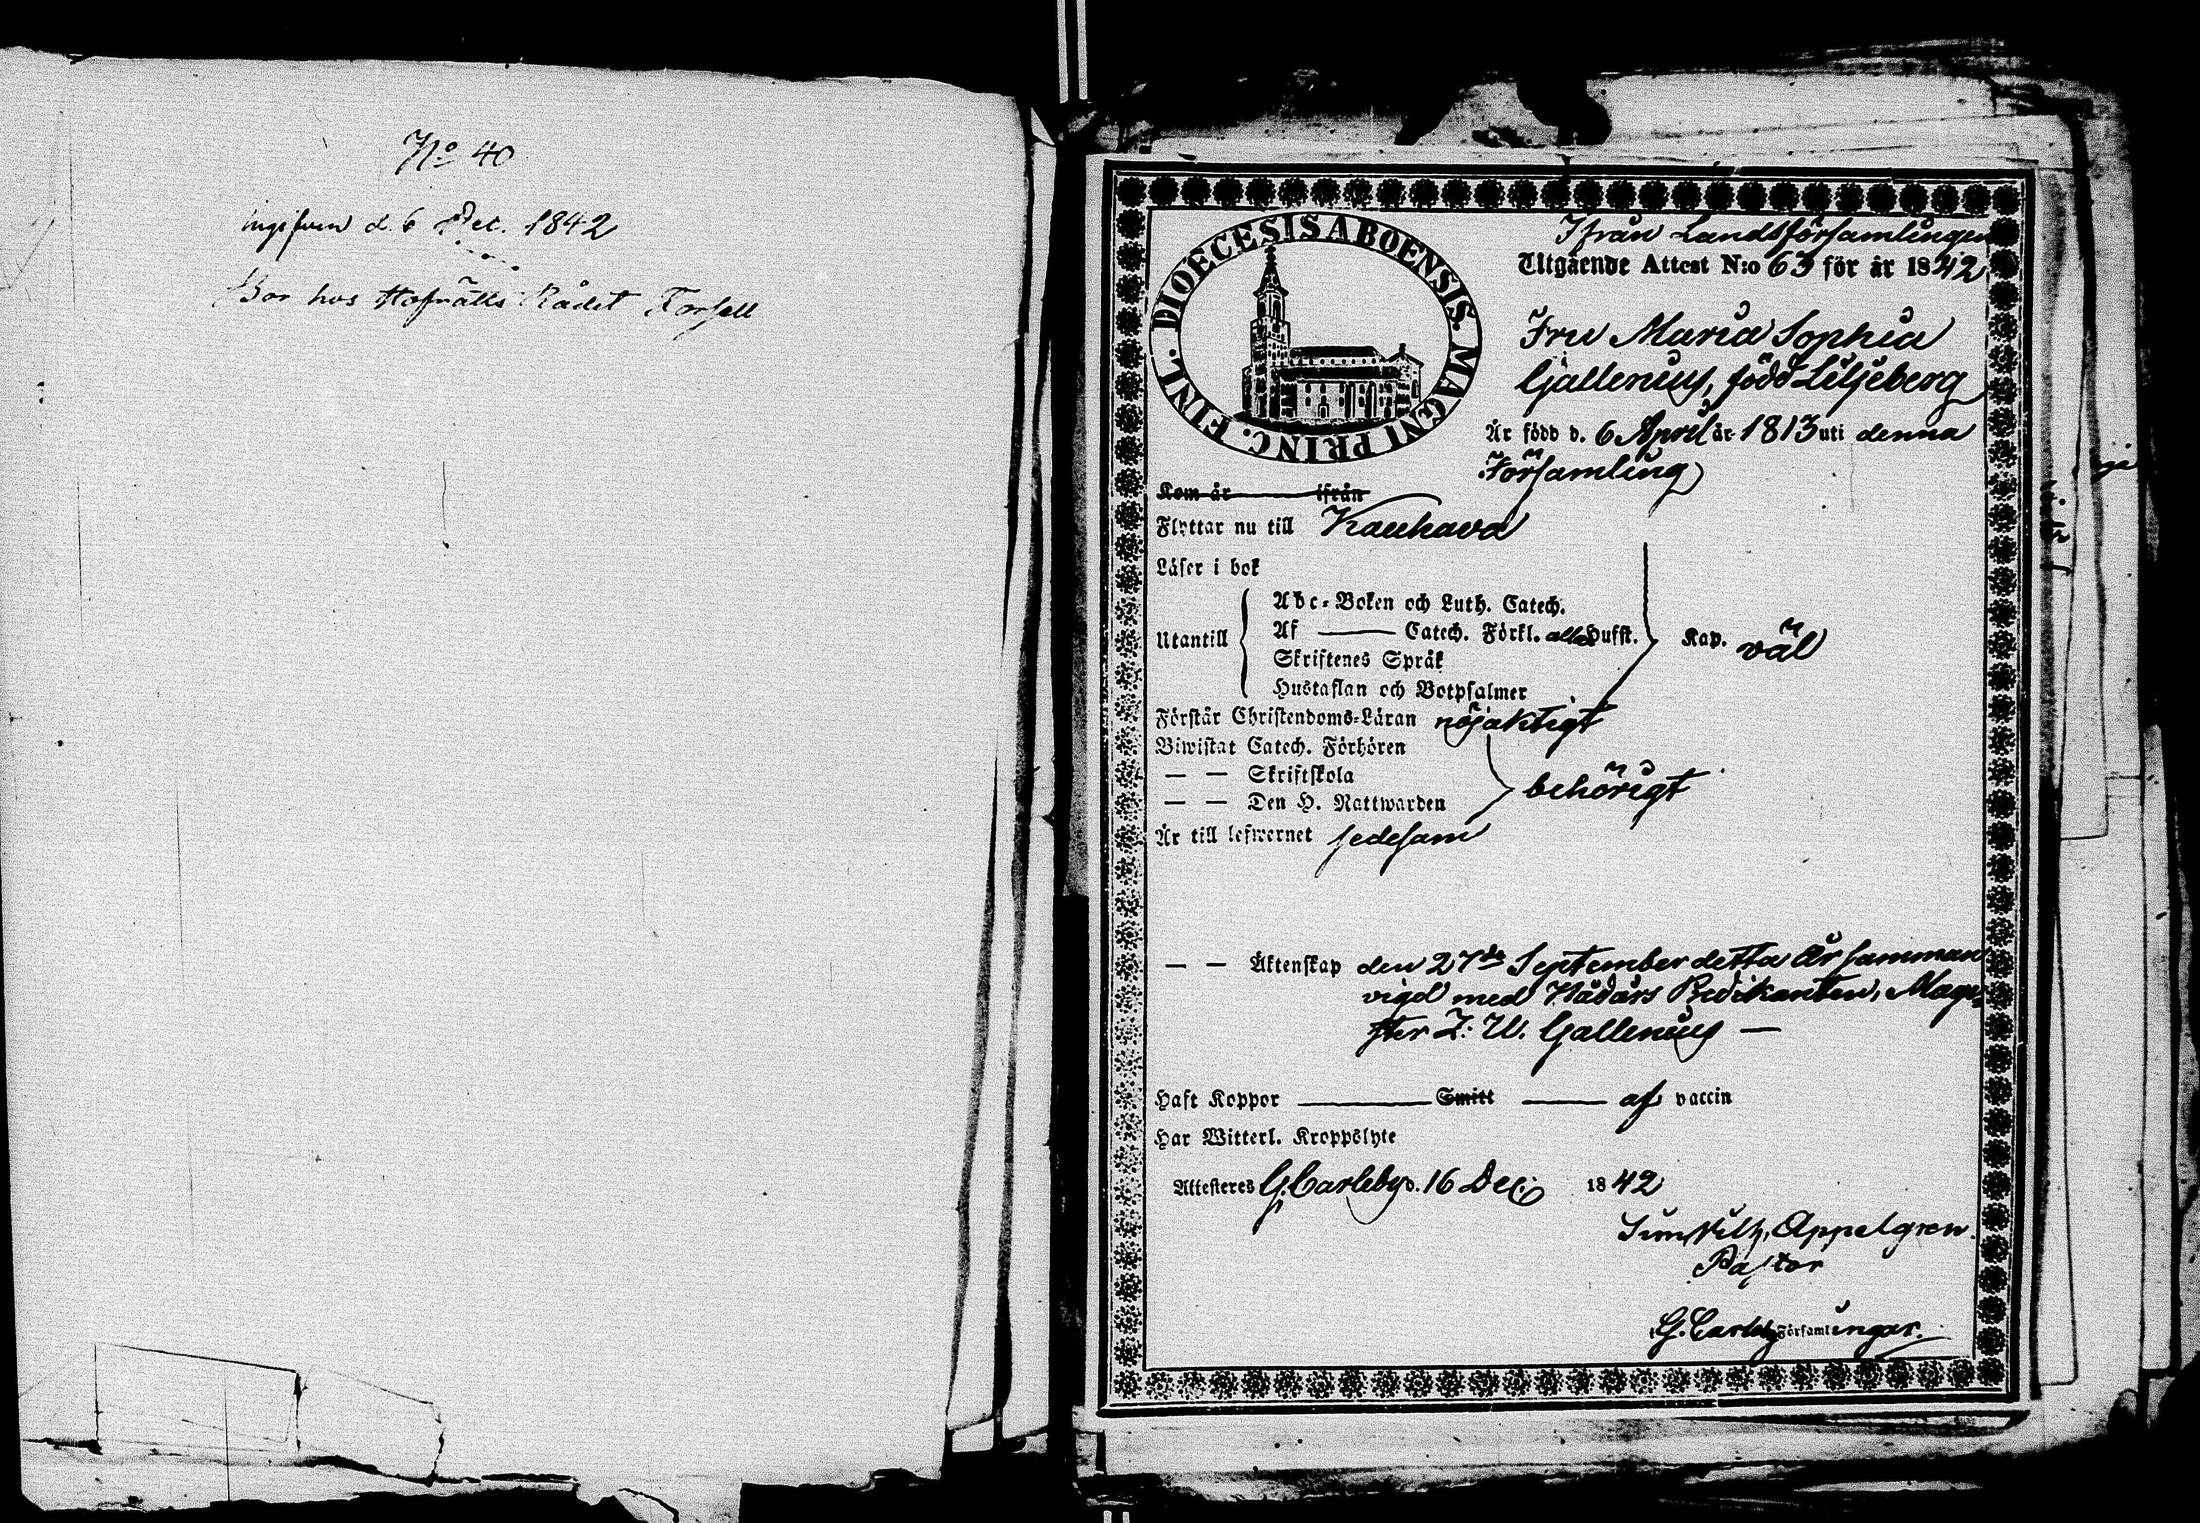 No 40
ingifven d. 6 Dec. 1842
Bor hos Hofrätts Rådet Forsell
DIOECESIS ABOENSIS. MAGNI PRINC. FINL.
Ifrån Landsförsamlingen
Utgående Attest N:o 63 för år 1842
Fru Maria Sophia
Gallenius, född Liljeberg
Är född d. 6 April år 1813 uti denna
Församling
Kom år ifrån
Flyttar nu till Kauhava
Läser i bok
Utantill
Abc-Boken och Luth. Catech.
Af — Catech. Förkl. alla Hufst.
Skriftenes Språk
Hustaflan och Botpsalmer
Kap. väl
Förstår Christendoms-Läran nöjaktigt
Biwistat Catech. Förhören
— — Skriftskola
— — Den H. Nattwarden
behörigt
Är till lefwernet sedesam
— — Äktenskap den 27de September detta År samman
vigd med Nådårs Predikanten, Magi-
ster Z. U. Gallenius —
Haft Koppor — Smitt — af vaccin
Har Witterl. Kroppslyte
Attesteras G. Carleby d. 16 Dec. 1842
Appelgren.
Pastor
G. Carleby Församlingar.